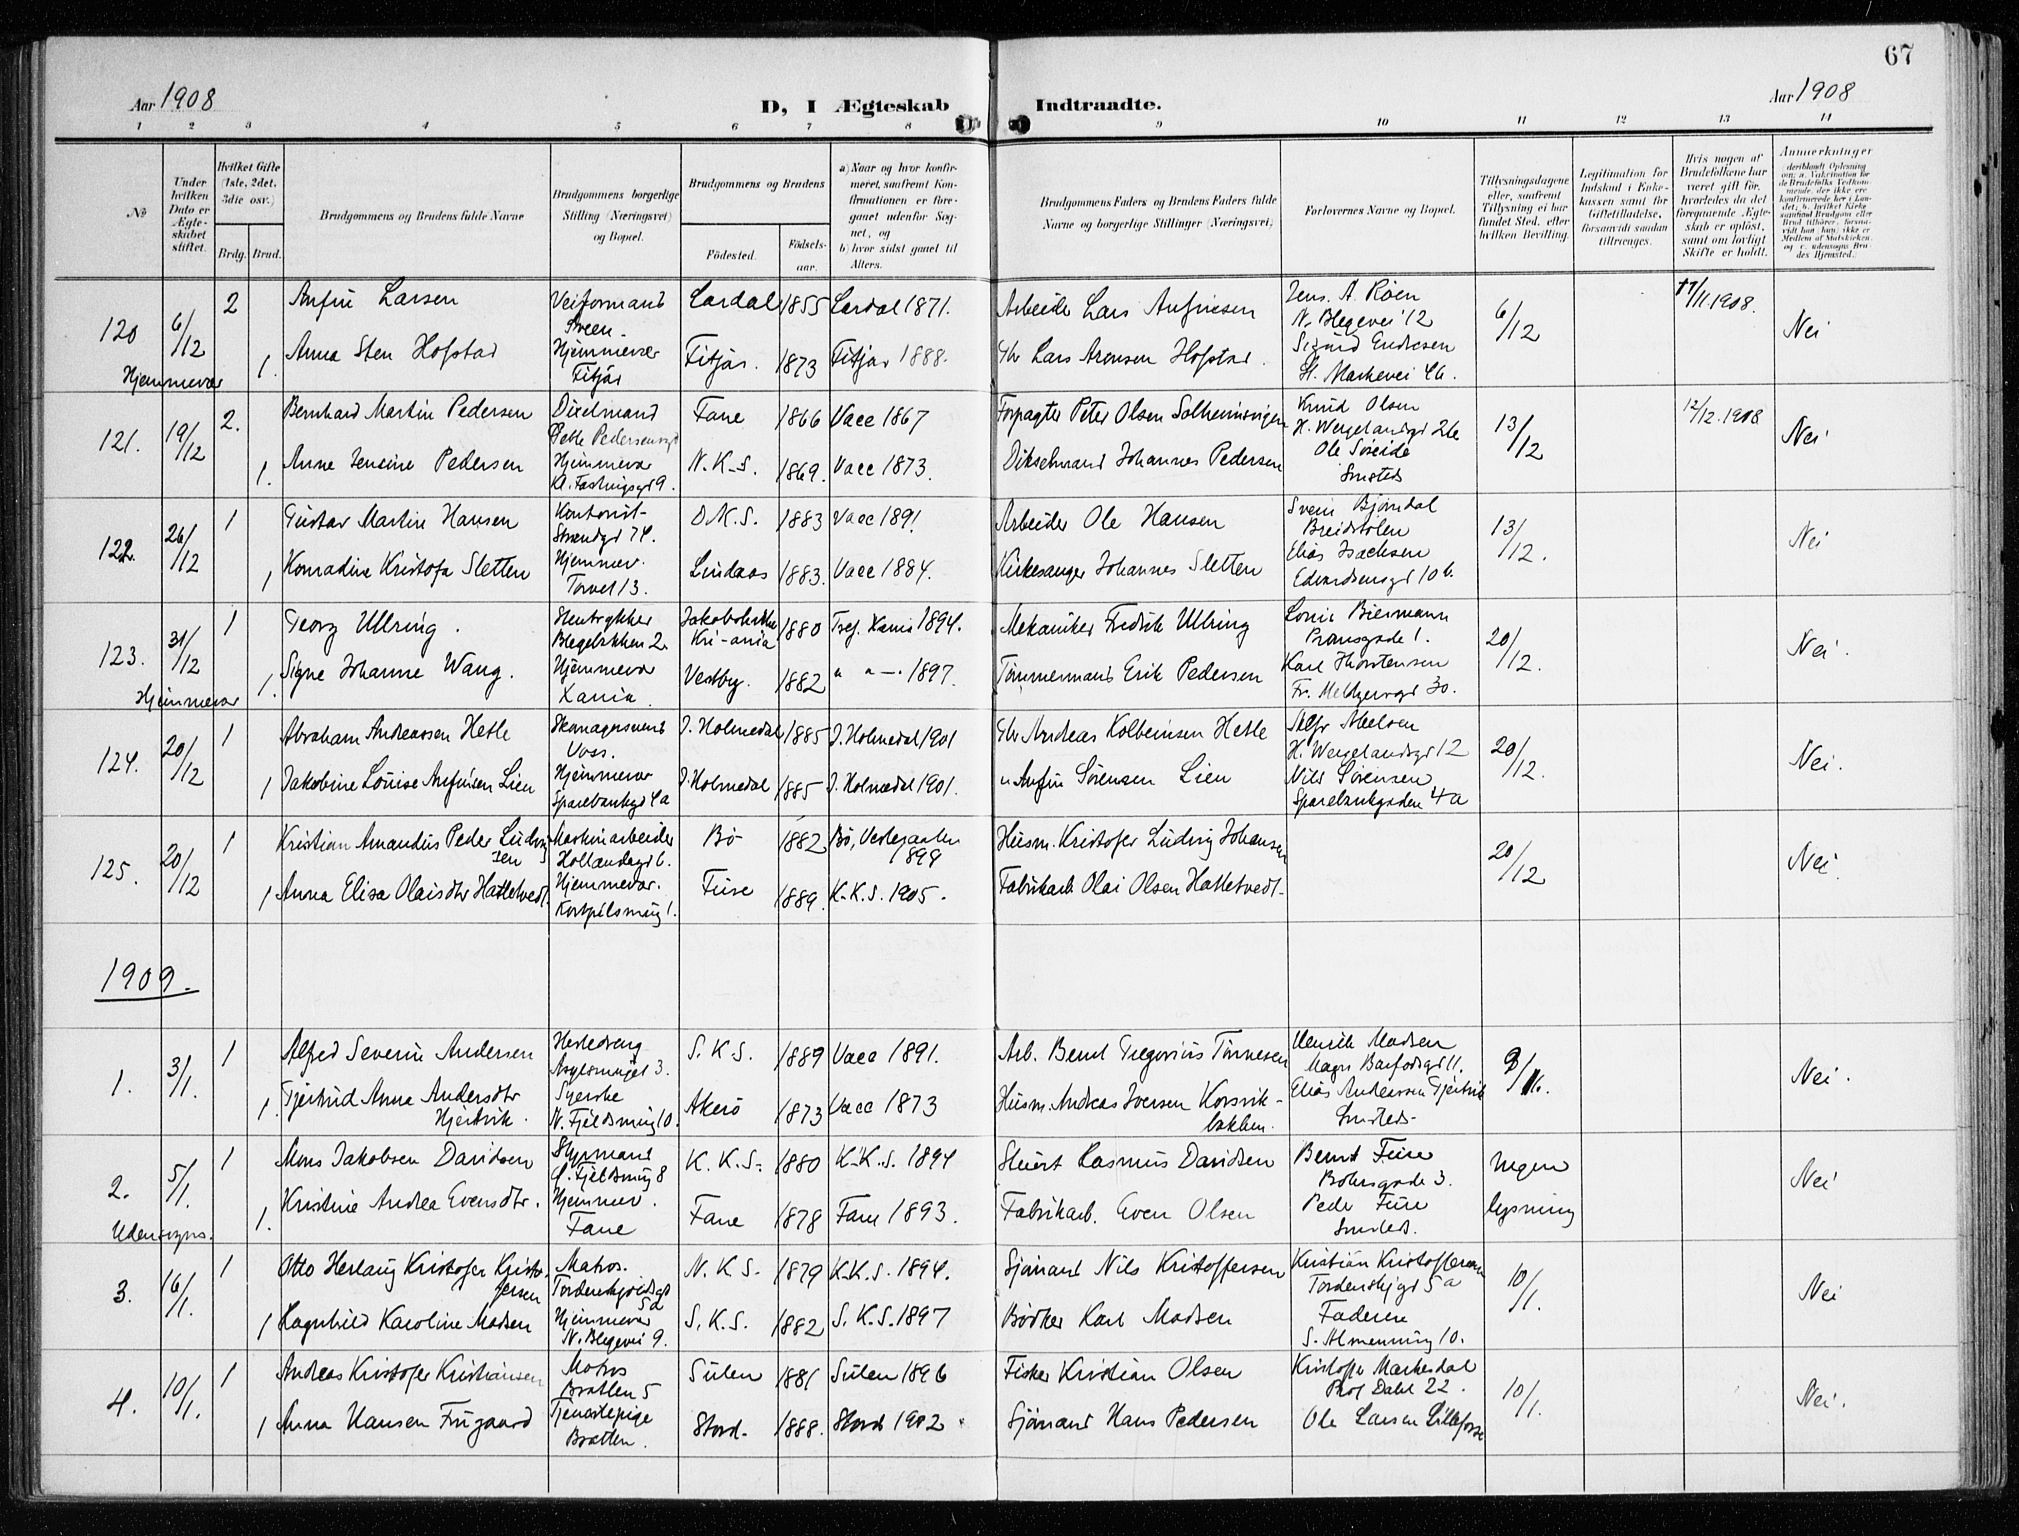 67
Aar 1908
D, I Ægteskab Indtraadte.
Aar 1908
1 2 3 4 5 6 7 8 9 10 11 12 13 14
№
Under hvilken Dato er Ægteskabet stiftet.
Hvilket Gifte (1ste, 2det, 3die osv.)
Brdg. Brud.
Brudgommens og Brudens fulde Navne
Brudgommens borgerlige Stilling (Næringsvei) og Bopæl.
Brudgommens og Brudens
Födested.
Födselsaar.
a) Naar og hvor konfirmeret, saafremt Konfirmationen er foregaaet udenfor Sognet, og
b) hvor sidst gaaet til Alters.
Brudgommens Faders og Brudens Faders fulde Navne og borgerlige Stillinger (Næringsvei)
Forlovernes Navne og Bopæl.
Tillysningsdagene eller, saafremt Tillysning ei har fundet Sted, efter hvilken Bevilling.
Legitimation for Indskud i Enkekassen samt for Giftetilladelse, forsaavidt saadan tiltrænges.
Hvis nogen af Brudefolkene har været gift för, hvorledes da det foregaaende Ægteskab er oplöst, samt om lovligt Skifte er holdt.
Anmærkninger
120 6/12 2 Anfin Larsen Veiformand Lærdal 1855 Lærdal 1871. Arbeider Lars Anfinsen Jens. A. Røen 6/12 17/11 1908. Nei
N. Blegevei 12
1. Anna Sten Hofstad Hjemmevær Fitjar. 1873 Fitjar 1888. Gbr Lars Arensen Hofstad. Sigurd Endresen
Fitjar St. Markevei 46.
Hjemmevær
121. 19/12 2. Bernhard Martin Pedersen Dixelmand Fane 1866 Vacc 1867 Forpagter Peter Olsen Solheimsvigen Knud Olsen 13/12 12/12.1908 Nei
H. Wergelandsgd 26
1. Anne Jensine Pedersen Hjemmevær N.K.S. 1869. Vacc 1873. Dikselmand Johannes Pedersen Ole Søreide
Kl. Fastingsgd 9. Smsteds
122. 26/12 1 Gustav Martin Hansen Kontorist D.K.S. 1883 Vacc 1891 Arbeider Ole Hansen Svein Bjørndal 13/12. Nei
Strandgd 74. Breidstølen
1 Konradine Kristofa Sletten Hjemmev. Lindaas 1883. Vacc 1884. Kirkesanger Johannes Sletten Elias Isachsen
Torvet 13. Edvardsensgd 10 b.
123. 31/12 1 Georg Ullring. Stentrykker Jakobskirken 1880 Tref. Xania 1894. Mekaniker Fredrik Ullring Louis Biermann 20/12. Nei.
Blegebakken 2. Kri-ania Pramsgade 1.
1. Signe Johanne Wang. Hjemmevær Vestby. 1882 " " —. 1897. Tømmermand Erik Pedersen Karl Thorstensen
Xania Fr. Meltzersgd 30.
Hjemmevær
124. 20/12 1 Abraham Andreassen Hetle Skomagersvend I. Holmedal 1885 I. Holmedal 1901 Gbr Andreas Kolbeinsen Hetle Alfr Abelsen 20/12. Nei.
Voss. H. Wergelandsgd 12
1 Jakobine Louise Anfinsen Lien Hjemmevær I Holmedal 1885 I. Holmedal 1901. " Anfin Sørensen Lien Nils Sørensen
Sparebankgd 4a Sparebankgaden 4a
125. 20/12 1 Kristian Amandus Peder Ludvigsen Maskinarbeider Bø 1882 Bø, Vesteraalen 1898 Husm. Kristofer Ludvig Johansen 20/12 Nei
Hollændergd 6.
1 Anna Elisa Olaisdtr Hatletvedt. Hjemmevær. Fuse 1889. K.K.S. 1905. Fabrikarb Olai Olsen Hatletvedt
1909.
1. 3/1. 1 Alfred Severin Andersen S.K.S. 1889 Vacc 1891. Arb. Bernt Gregorius Tønnesen Henrik Madsen Nei.
Asylsmuget 3. Magn Barfodsgd 11.
1. Gjertrud Anna Andersdtr Hjertvik. Syerske Akerø 1873 Vacc 1873 Husm. Andreas Iversen Korsvikbakken. Elias Andersen Gjertvik
N. Fjeldsmug 10. Smsteds
2. 5/1. 1 Mons Jakobsen Davidsen Styrmand K.K.S. 1880 K.K.S. 1894 Stuert Rasmus Davidsen Bernt Fuse Ingen lysning Nei
Ø. Fjeldsmug 8 Bohrsgade 3.
1. Kristine Andrea Evensdtr. Hjemmev. Fane 1878 Fane 1893. Fabrikarb. Even Olsen Peder Fuse
Fane Smsteds.
Udensogns.
3. 16/1. 1 Otto Herlaug Kristofer Kristoffersen Matros. N.K.S. 1879 K.K.S. 1894. Sjømand Nils Kristoffersen Kristian Kristoffersen 10/1. Nei
Tordenskjoldsgd 5a Tordenskjgd 5a
1 Hagnhild Karoline Madsen Hjemmevær S.K.S. 1882 S.K.S. 1897 Bødker Karl Madsen Faderen
N. Blegevei 9. S. Almenning 10.
4. 10/1. 1 Andreas Kristofer Kristiansen Matros Sulen 1881 Sulen 1896 Fisker Kristian Olsen Kristoffer Markesdal 10/1. Nei.
Bratten 5 Prof Dahl 22.
1 Anna Hansen Frugaard Tjenestepige Stord. 1888. Stord 1902 Sjømand Hans Pedersen Ole Larsen Lillefosse
Bratten.